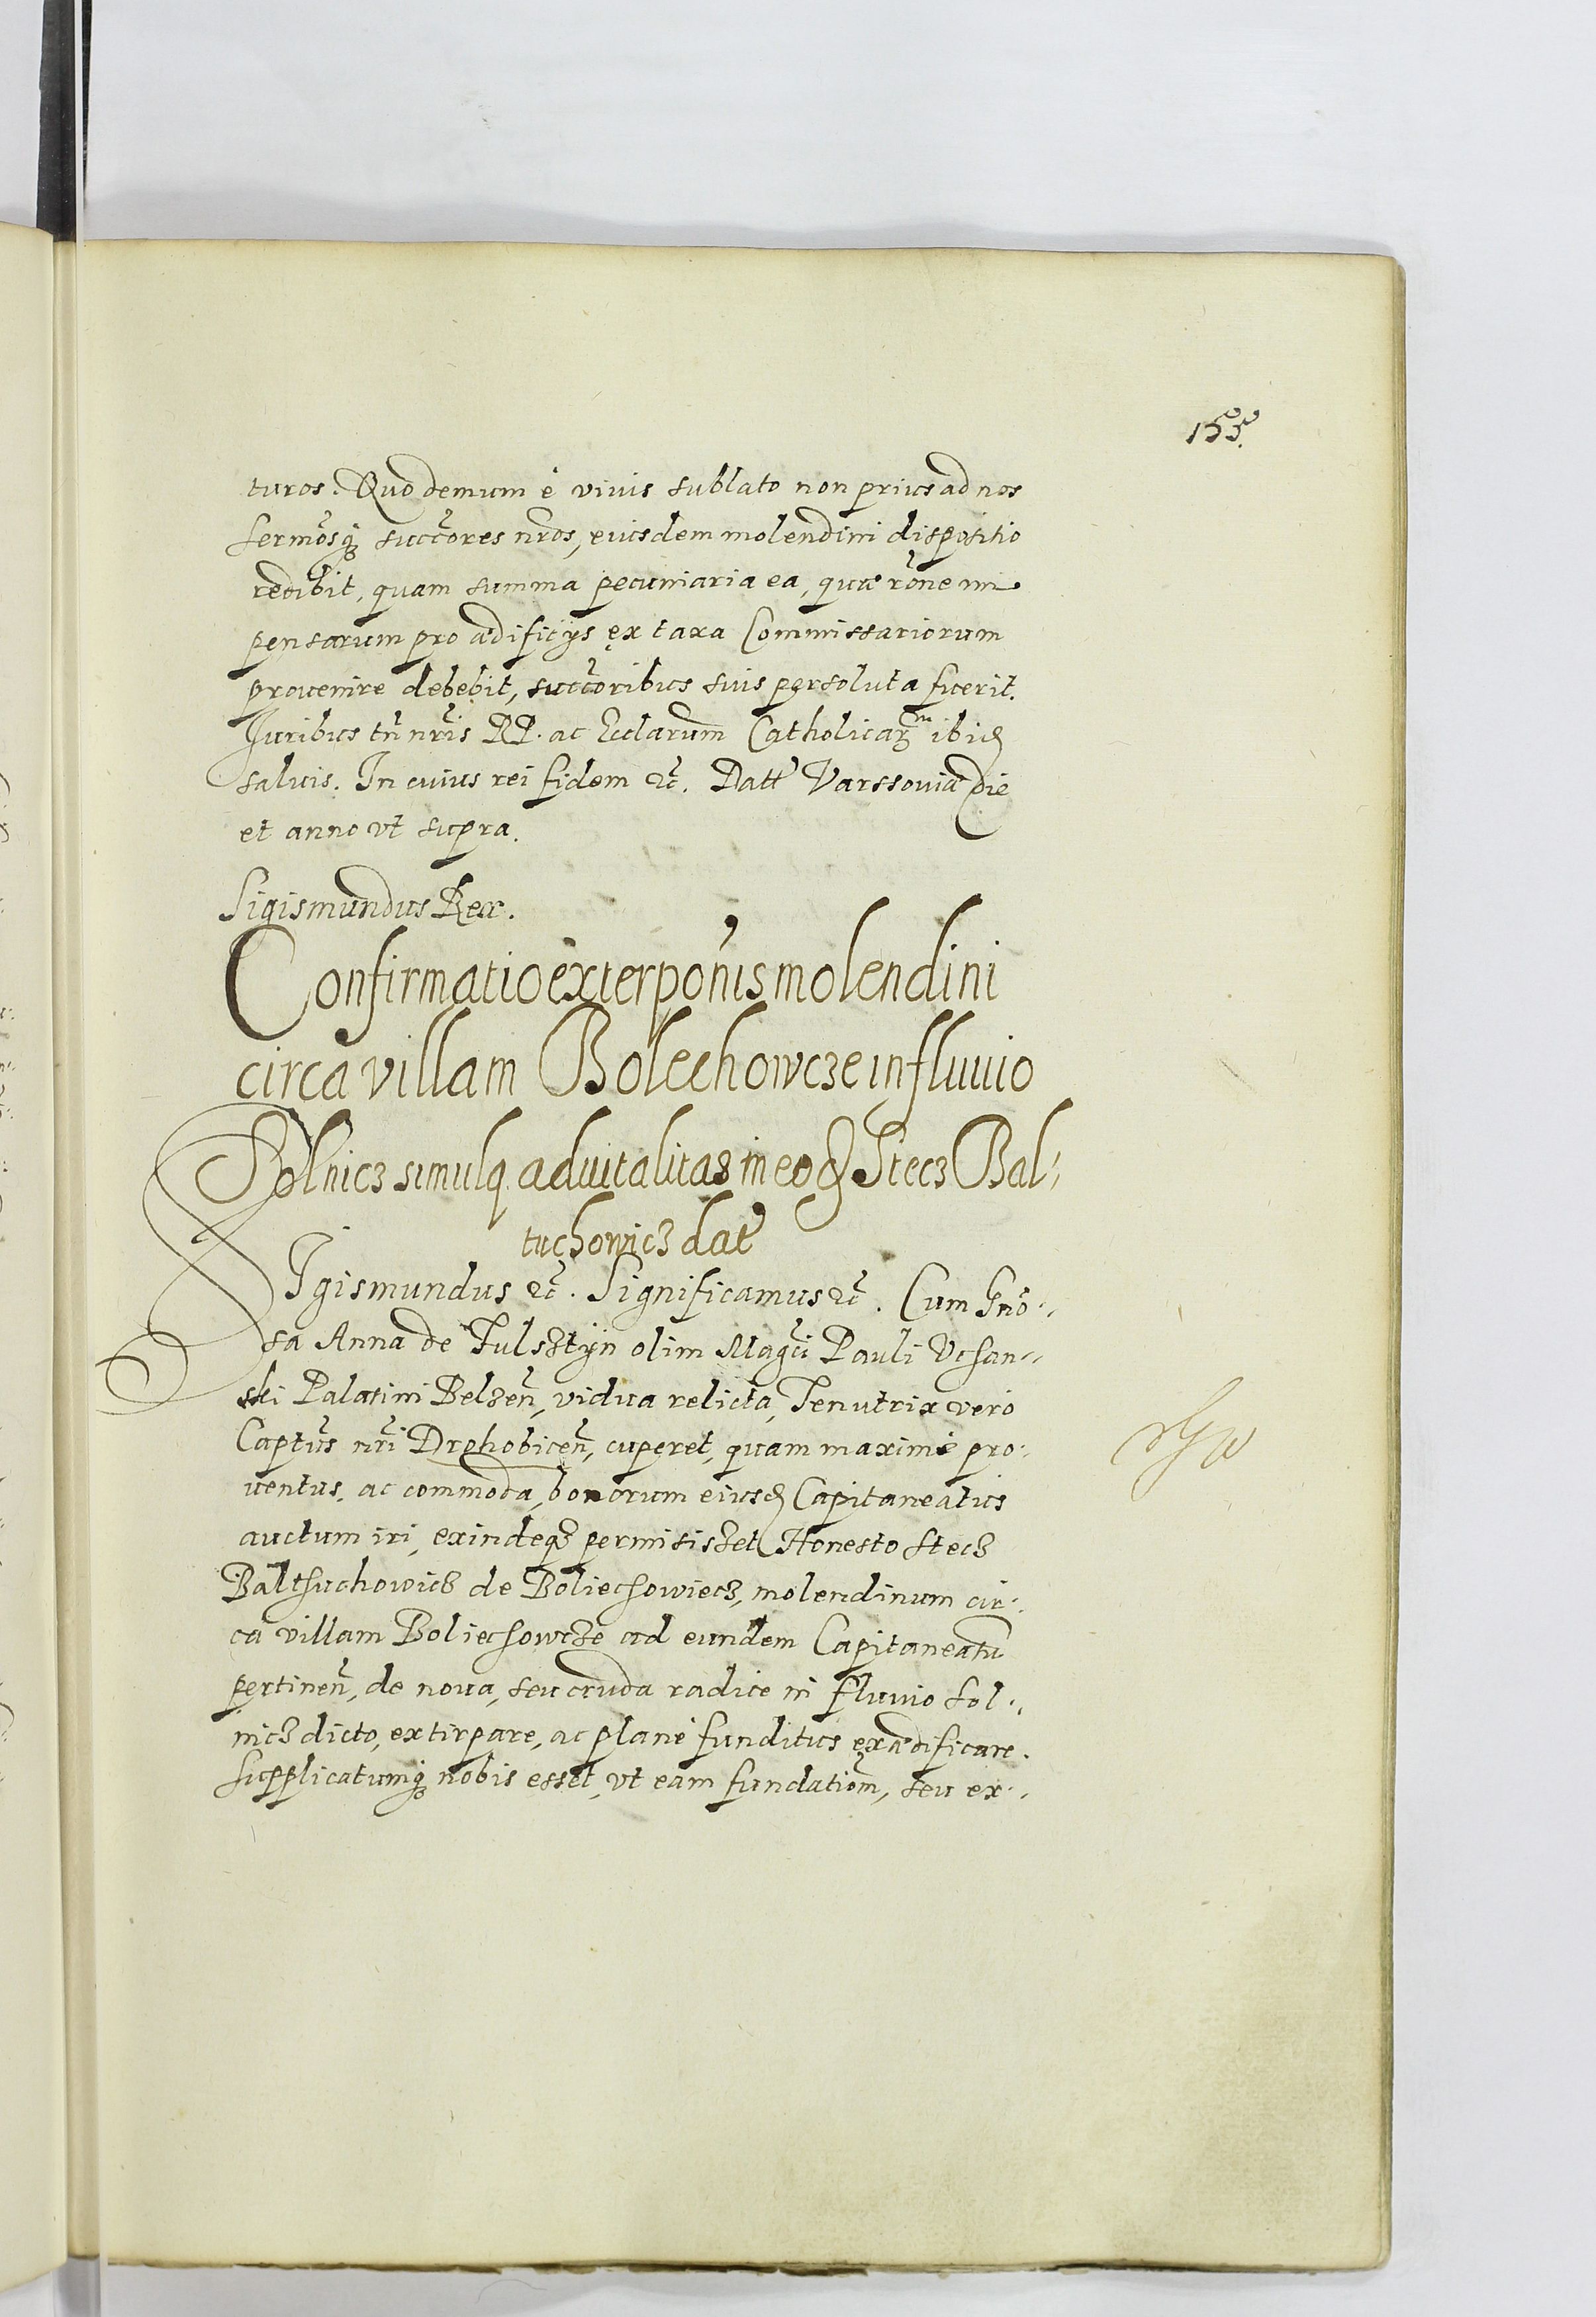 155.
turos. Quo demum è viuis sublato non prius ad nos
Sermosq; succōres nros, eiusdem molendini dispositio
redibit, quam summa pecuniaria ea, quæ rōne im
pensarum pro ædificijs ex taxa Commissariorum
prouenire debebit, succōribus suis persoluta fuerit.
Juribus tn̄ nris RP. ac Ecclarum Catholicar̄m ibid
saluis. In cuius rei fidem etc. Datt Varssouiæ die
et anno vt supra.
Sigismundus Rex.
Confirmatio exterpōnis molendini
circa villam Bolechowcze in fluuio
Solnicz simulq aduitalitas in eod Stecz Bal-
tuchowicz dat
SIgismundus etc. Significamus etc. Cum Gnō-
sa Anna de Fulsztÿn olim Magci Pauli Vchan-
ski Palatini Belzen̄, vidua relicta, Tenutrix vero
Captūs nri Drohobicen̄, cuperet, quam maximè pro-
uentus, ac commoda, bonorum eiusd Capitaneatus
auctum iri, exindeq; permisiszet Honesto Stecz
Balthuchowicz de Boliechowiecz, molendinum cir-
ca villam Boliechowcze ad eundem Capitaneatū
pertinen̄, de noua, seu cruda radice in fluuio Sol-
nicz dicto, extirpare, ac planè funditus exædificare.
Supplicatumq; nobis esset, vt eam fundatiom̄, seu ex-